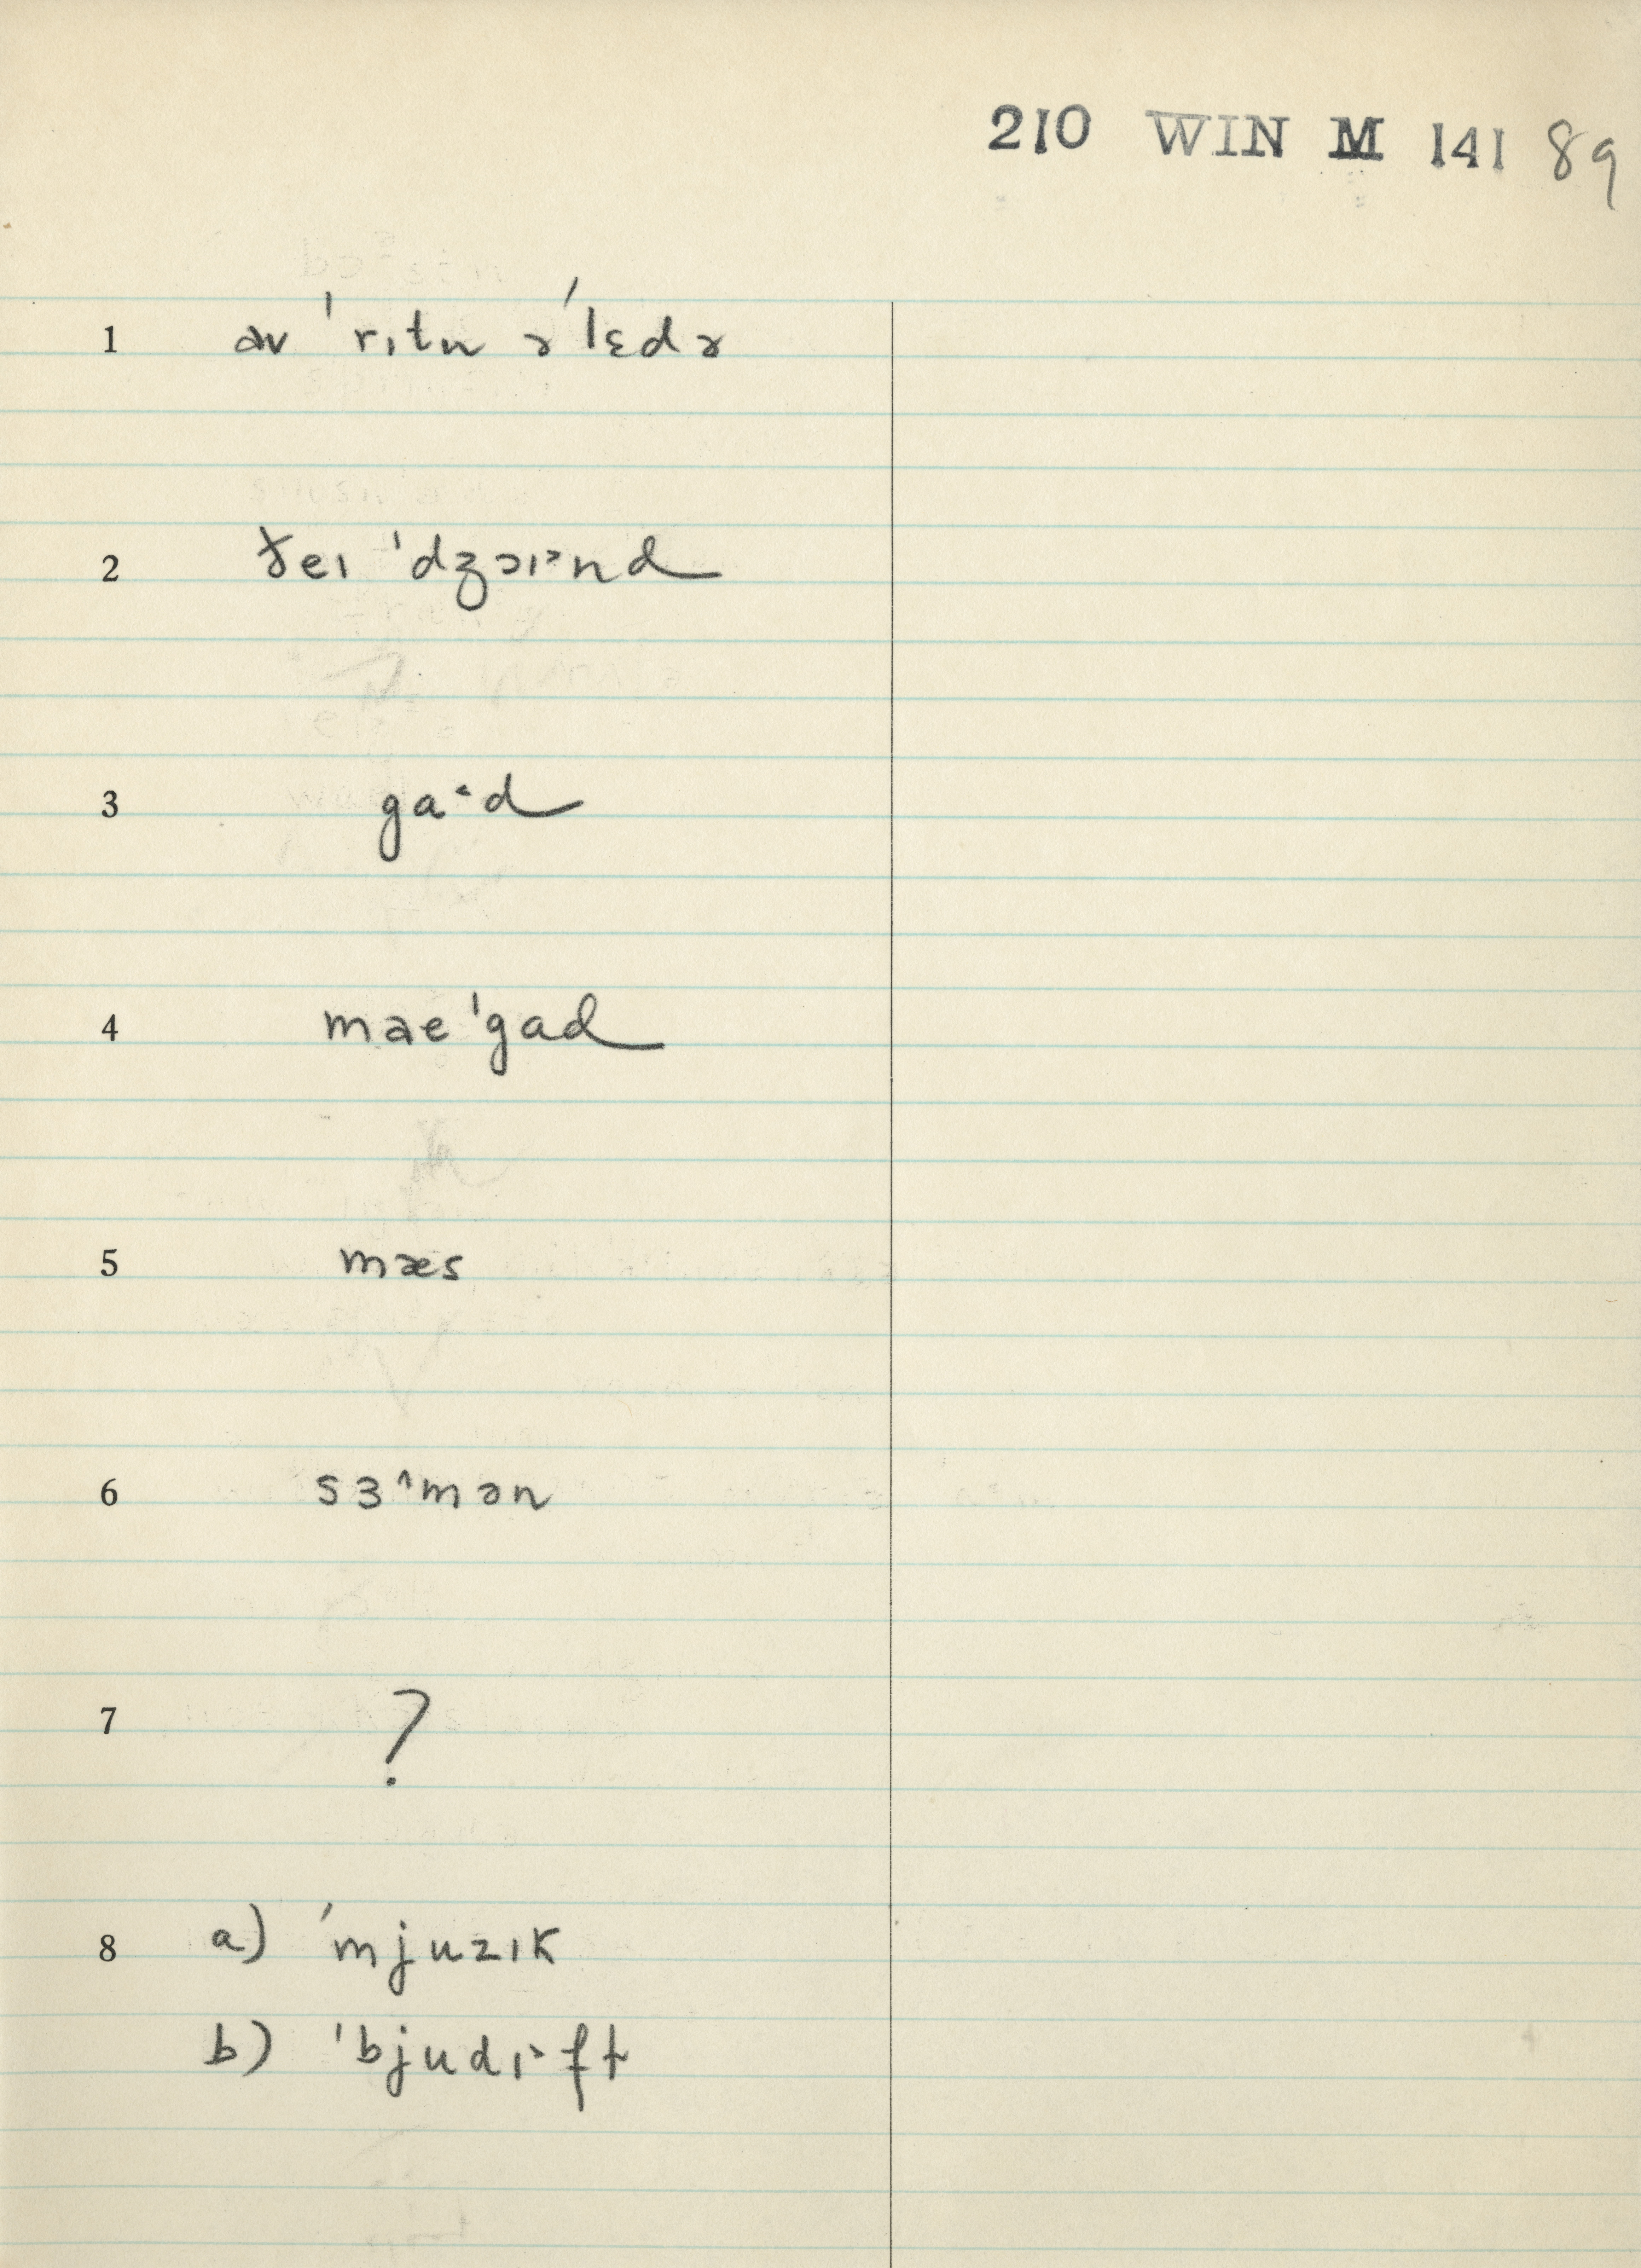 210 WIN M 141 89
1 əv ˈrɪtn̩ əˈlɛdɚ
2 ðeɪ ˈdʒɔɪ˃nd
3 ga˂d
4 maeˈgad
5 mæs
6 sɜ˄mən
7 ?
8 a) ˈmjuzɪk
b) ˈbjudɪ˃ft